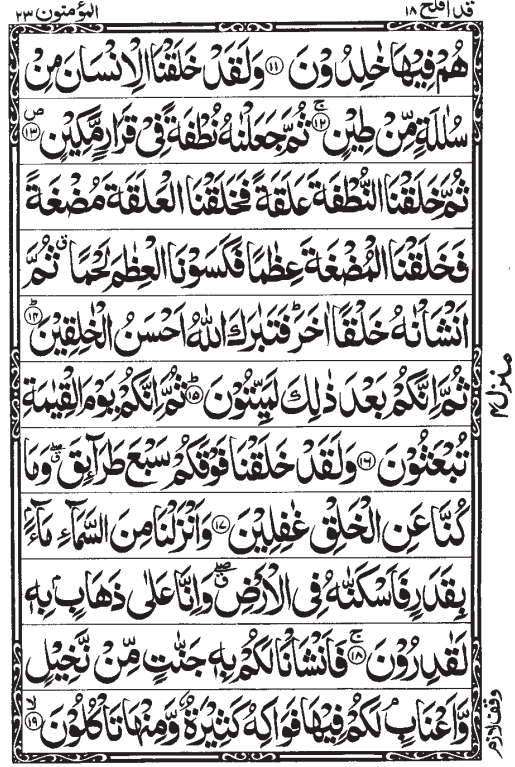 قد افلح ۱۸
المؤمنون ۲۳
هُمْ فِيْهَا خٰلِدُوْنَ ﴿۱۱﴾ وَلَقَدْ خَلَقْنَا الْاِنْسَانَ مِنْ
سُلٰلَةٍ مِّنْ طِيْنٍ ۚ﴿۱۲﴾ ثُمَّ جَعَلْنٰهُ نُطْفَةً فِيْ قَرَارٍ مَّكِيْنٍ ۪﴿۱۳﴾
ثُمَّ خَلَقْنَا النُّطْفَةَ عَلَقَةً فَخَلَقْنَا الْعَلَقَةَ مُضْغَةً
فَخَلَقْنَا الْمُضْغَةَ عِظٰمًا فَكَسَوْنَا الْعِظٰمَ لَحْمًا ۗ ثُمَّ
اَنْشَاْنٰهُ خَلْقًا اٰخَرَ ؕ فَتَبٰرَكَ اللّٰهُ اَحْسَنُ الْخٰلِقِيْنَ ؕ﴿۱۴﴾
ثُمَّ اِنَّكُمْ بَعْدَ ذٰلِكَ لَمَيِّتُوْنَ ؕ﴿۱۵﴾ ثُمَّ اِنَّكُمْ يَوْمَ الْقِيٰمَةِ
تُبْعَثُوْنَ ﴿۱۶﴾ وَلَقَدْ خَلَقْنَا فَوْقَكُمْ سَبْعَ طَرَآئِقَ ۖۗ وَمَا
كُنَّا عَنِ الْخَلْقِ غٰفِلِيْنَ ﴿۱۷﴾ وَاَنْزَلْنَا مِنَ السَّمَآءِ مَآءًۢ
بِقَدَرٍ فَاَسْكَنّٰهُ فِي الْاَرْضِ ۖۗ وَاِنَّا عَلٰى ذَهَابٍۭ بِهٖ
لَقٰدِرُوْنَ ۚ﴿۱۸﴾ فَاَنْشَاْنَا لَكُمْ بِهٖ جَنّٰتٍ مِّنْ نَّخِيْلٍ
وَّاَعْنَابٍ ۘ لَكُمْ فِيْهَا فَوَاكِهُ كَثِيْرَةٌ وَّمِنْهَا تَاْكُلُوْنَ ۙ﴿۱۹﴾
منزل ۴
وقف لازم